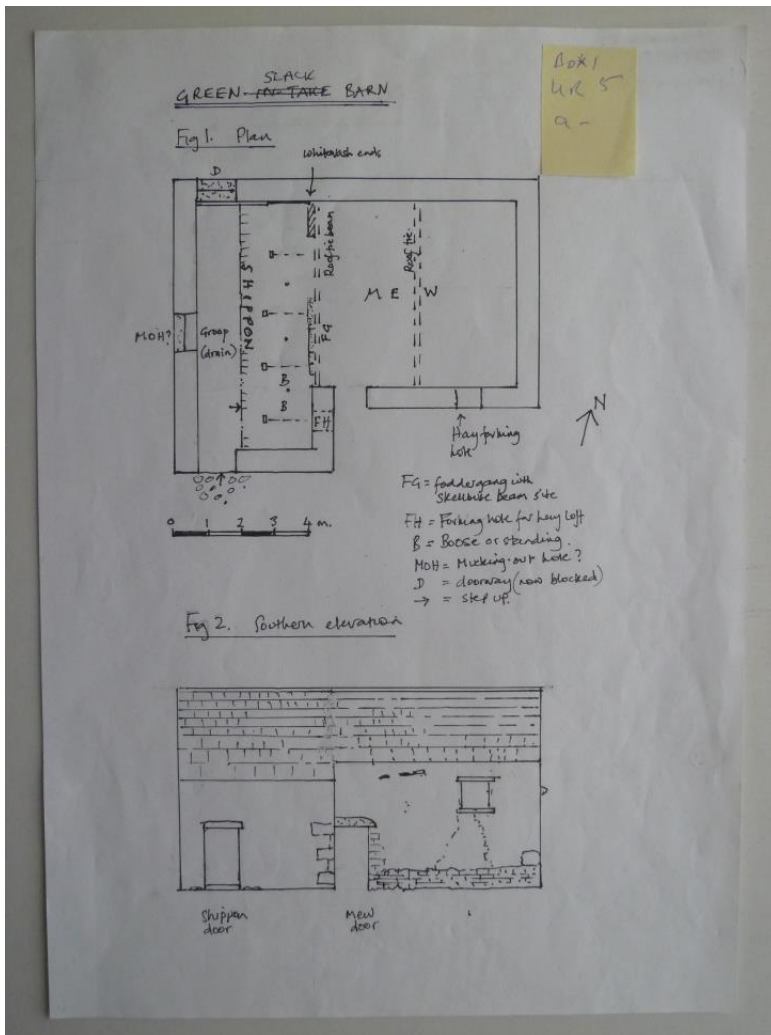 SLACK
GREEN IN-TAKE BARN
Box 1
UR 5
a -
Fig 1. Plan
Whitewash ends
D
SHIPPON
Roof tie beam
Roof tie
MEW
MOH?
Groop
(drain)
FG
B
B
FH
Hay forking
hole
N
0 1 2 3 4 m.
FG = foddergang with
skelbuse beam site
FH = Forking hole for hay loft
B = Boose or standing.
MOH = Mucking-out hole?
D = doorway (now blocked)
→ = step up.
Fig 2. Southern elevation
Shippon
door
Mew
door